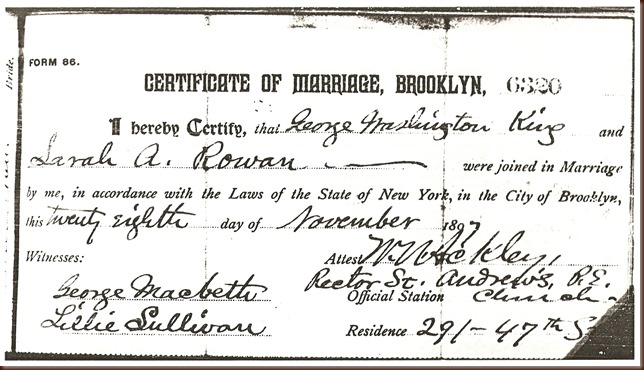 Bride.
FORM 86.
CERTIFICATE OF MARRIAGE, BROOKLYN, 6320
I hereby Certify, that George Washington King and
Sarah A. Rowan were joined in Marriage
by me, in accordance with the Laws of the State of New York, in the City of Brooklyn,
this twenty eighth day of November 1897
Witnesses: Attest W. N. Ackley,
George Macbeth Rector St. Andrew's, P.E.
Official Station Church
Lillie Sullivan Residence 291- 47th S